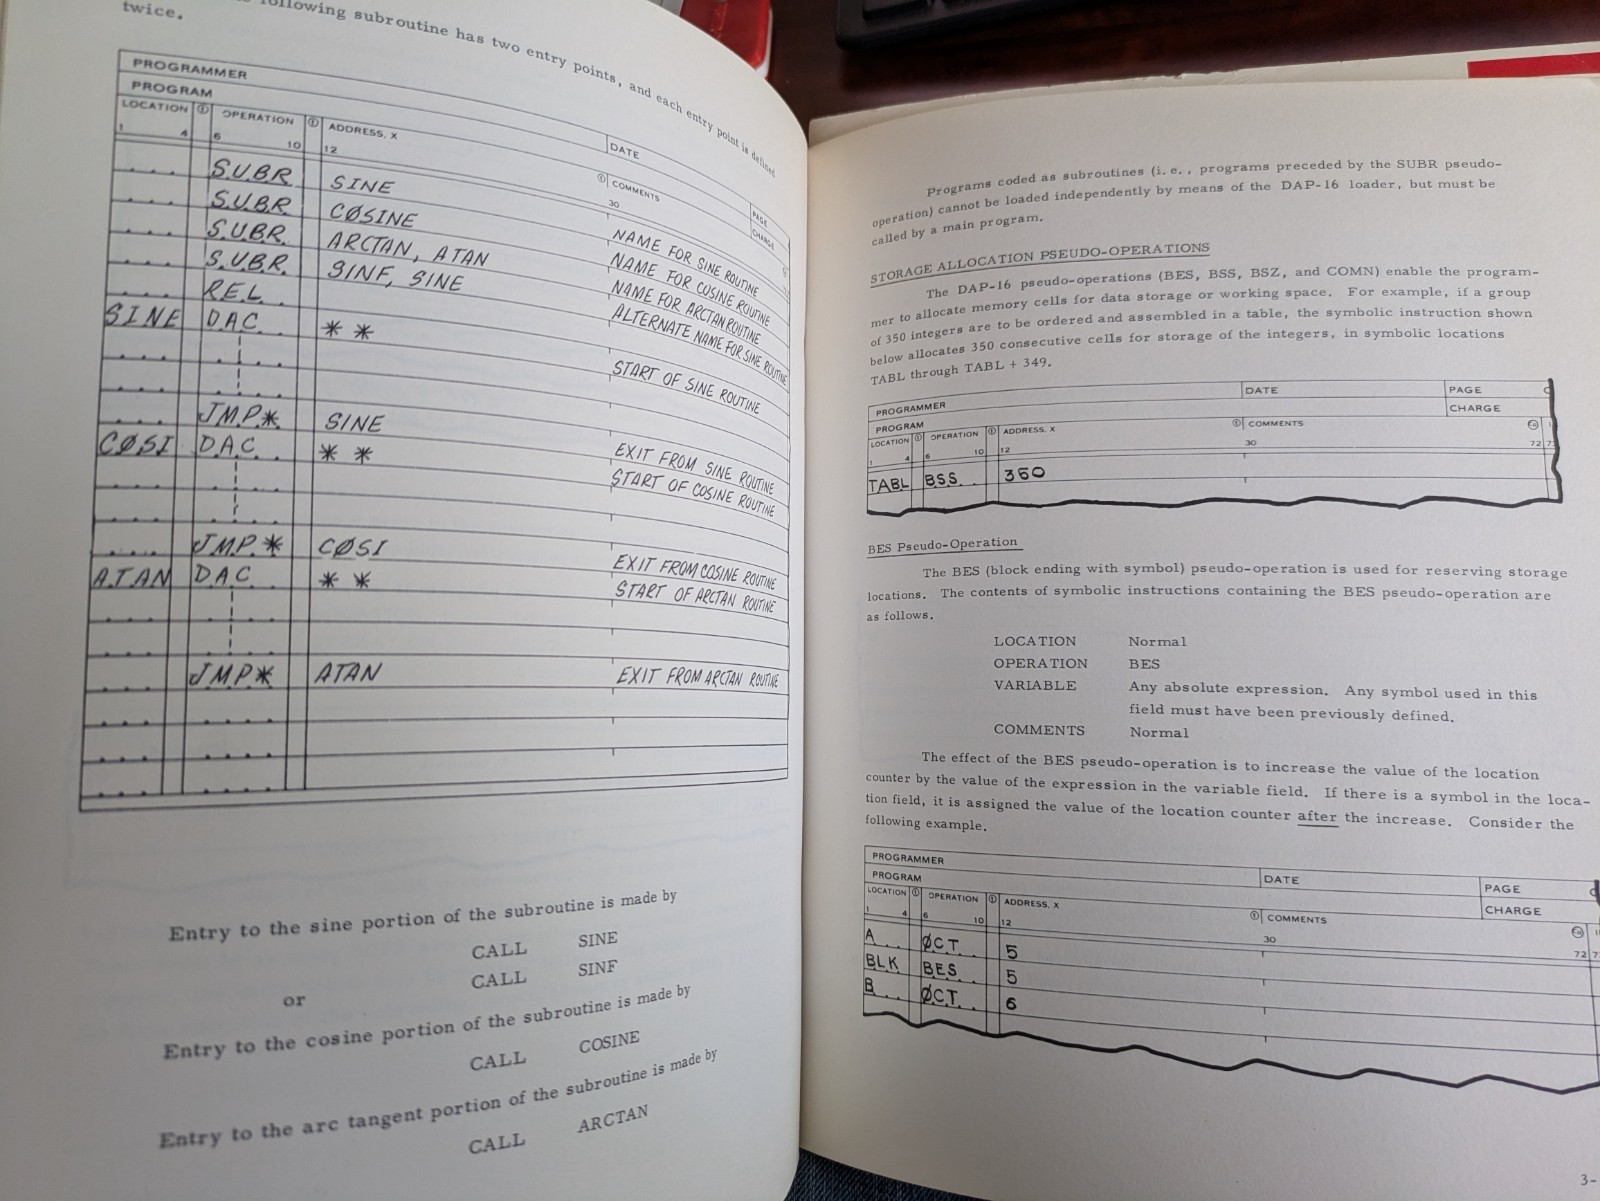 following subroutine has two entry points, and each entry point is defined
twice.
PROGRAMMER
PROGRAM
DATE
PAGE
CHARGE
LOCATION ① OPERATION ① ADDRESS, X ① COMMENTS
1 4 6 10 12 30
SUBR SINE NAME FOR SINE ROUTINE
SUBR CØSINE NAME FOR COSINE ROUTINE
SUBR ARCTAN, ATAN NAME FOR ARCTAN ROUTINE
SUBR SINF, SINE ALTERNATE NAME FOR SINE ROUTINE
REL
SINE DAC ** START OF SINE ROUTINE
JMP* SINE EXIT FROM SINE ROUTINE
CØSI DAC ** START OF COSINE ROUTINE
JMP* CØSI EXIT FROM COSINE ROUTINE
ATAN DAC ** START OF ARCTAN ROUTINE
JMP* ATAN EXIT FROM ARCTAN ROUTINE
Entry to the sine portion of the subroutine is made by
CALL SINE
CALL SINF
or
Entry to the cosine portion of the subroutine is made by
CALL COSINE
Entry to the arc tangent portion of the subroutine is made by
CALL ARCTAN
Programs coded as subroutines (i. e. , programs preceded by the SUBR pseudo-
operation) cannot be loaded independently by means of the DAP-16 loader, but must be
called by a main program.
STORAGE ALLOCATION PSEUDO-OPERATIONS
The DAP-16 pseudo-operations (BES, BSS, BSZ, and COMN) enable the program-
mer to allocate memory cells for data storage or working space. For example, if a group
of 350 integers are to be ordered and assembled in a table, the symbolic instruction shown
below allocates 350 consecutive cells for storage of the integers, in symbolic locations
TABL through TABL + 349.
PROGRAMMER DATE PAGE
PROGRAM CHARGE
LOCATION ① OPERATION ① ADDRESS, X ① COMMENTS
1 4 6 10 12 30 72
TABL BSS 350
BES Pseudo-Operation
The BES (block ending with symbol) pseudo-operation is used for reserving storage
locations. The contents of symbolic instructions containing the BES pseudo-operation are
as follows.
LOCATION Normal
OPERATION BES
VARIABLE Any absolute expression. Any symbol used in this
field must have been previously defined.
COMMENTS Normal
The effect of the BES pseudo-operation is to increase the value of the location
counter by the value of the expression in the variable field. If there is a symbol in the loca-
tion field, it is assigned the value of the location counter after the increase. Consider the
following example.
PROGRAMMER DATE PAGE
PROGRAM CHARGE
LOCATION ① OPERATION ① ADDRESS, X ① COMMENTS
1 4 6 10 12 30 72
A ØCT 5
BLK BES 5
B ØCT 6
3-